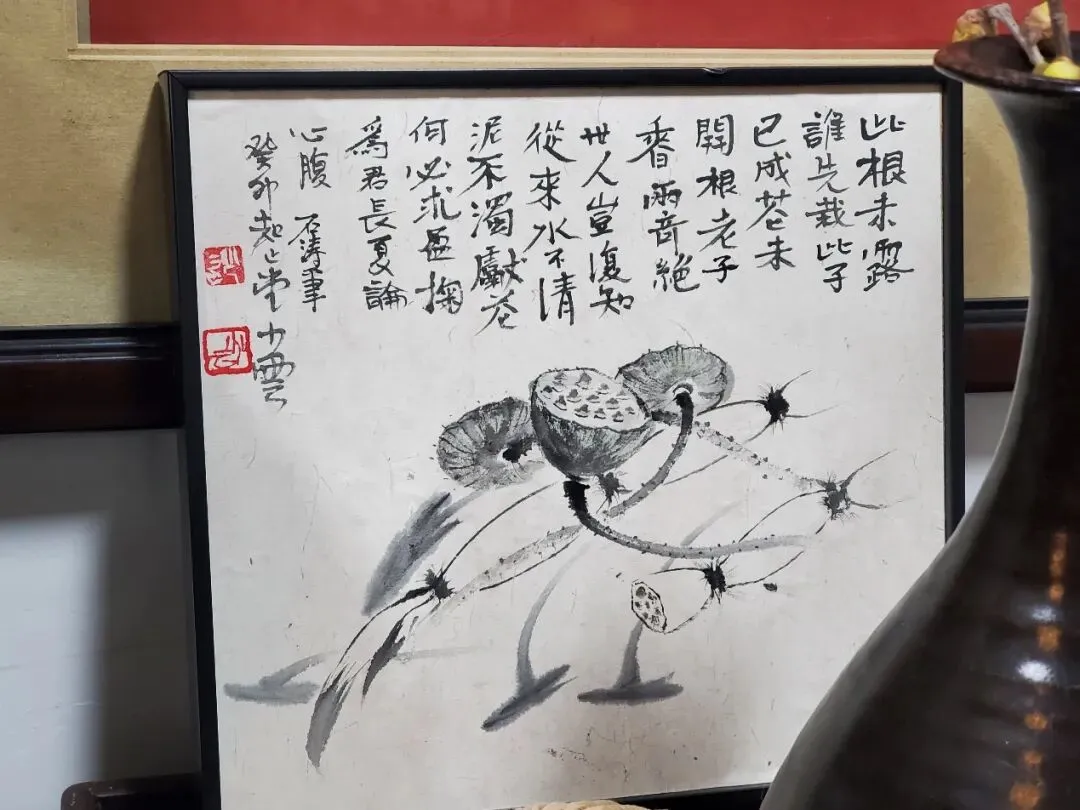 此根未露
誰先栽此子
已成花未
開根老子
香兩奇絕
世人豈復知
從來水不清
泥不濁獻花
何必求盈掬
爲君長夏論
心腹 石濤筆
癸卯 堂 雲